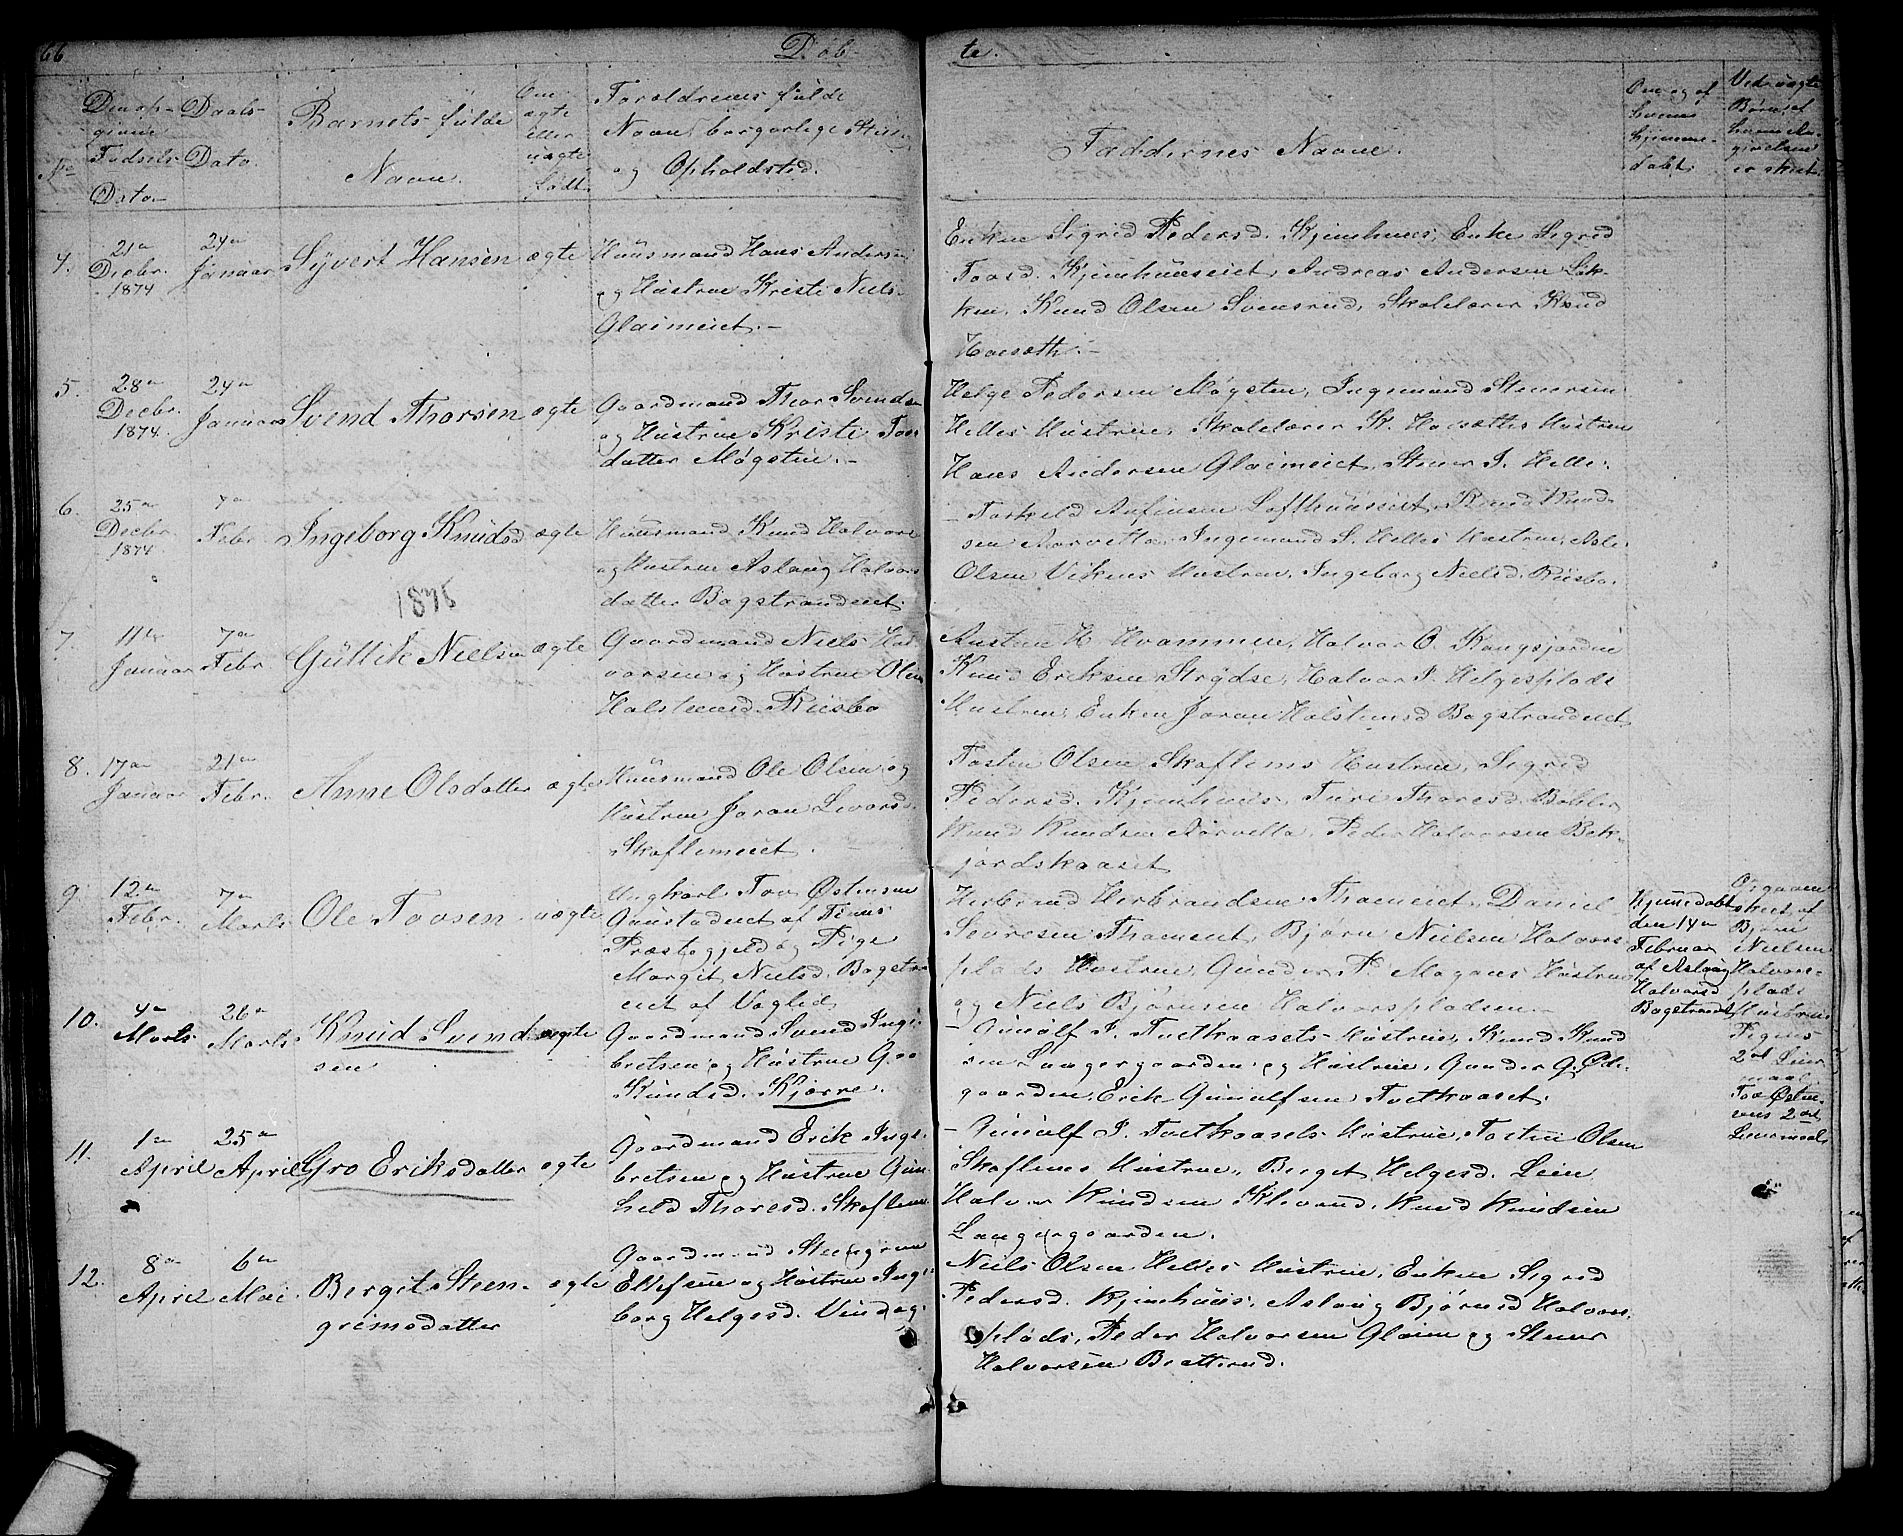 66
Døb-
te.
No
Den op-
givne
Fødsels-
Dato.
Daabs-
Dato.
Barnets fulde
Navn.
Om
ægte
eller
uægte
født.
Forældrenes fulde
Navn, borgerlige Stilling
og Opholdsted.
Faddernes Navne.
Om og af
hvem
hjemme-
døbt.
Ved uægte
Børn, af
hvem An-
givelsen
er skeet.
4.
21de
Decbr.
1874
24de
Januar
Syvert Hansen
ægte
Huusmand Hans Andersen
og Hustrue Kristi Niels-
Glaimeiet.-
Enken Sigrid Pedersd. Kjemhuus, Enke Sigrid
Tovsd. Kjemhuuseiet, Andreas Andersen Lik-
ken, Knud Olsen Svensrud, Skolelærer Knud
Haesæth.-
5.
28de
Decbr.
1874.
24de
Januar
Svend Thorsen
ægte
Gaardmand Thor Svendsen
og Hustrue Kristi Tovs-
datter Møgsten.-
Helge Pedersen Møgsten, Ingemund Stenersen
Helles Hustrue, Skolelærer K. Haesæths Hustrue
Hans Andersen Glaimeiet, Stener I. Helle.
6.
25de
Decbr.
1874
7de
Febr.
Ingeborg Knudsd
ægte
Huusmand Knud Halvors
og Hustrue Aslaug Halvors
datter Bagstrandeiet.
- Torkeld Anfinsen Lofthuuseiet, Knud Knud-
sen Aarvelta, Ingemund S. Helles Hustrue, Asle
Olsen Vikens Hustrue, Ingeborg Nielsd. Riisbo.
1875
7.
11te
Januar
7de
Febr.
Gullik Nielsen
ægte
Gaardmand Niels Hal-
vorsen og Hustrue Olin
Halstensd. Riisbo
Austen H. Hvammen, Halvor O. Kongsjorden
Knud Eriksen Strydse, Halvor I. Helgesplads
Hustrue, Enken Joran Halstensd Bagstrandeiet
8.
17de
Januar
21de
Febr.
Anne Olsdatter
ægte
Huusmand Ole Olsen og
Hustrue Joran Sivarsd.
Skaflemeiet.
Tosten Olsen Skaflems Hustrue, Sigrid
Pedersd. Kjemhuus, Turi Thoresd. Bøhler
Knud Knudsen Aarvelta, Peder Halvorsen Bek-
jordskaaset
9.
12de
Febr.
7de
Marts
Ole Tovsen
uægte
Ungkarl Tov Østensen
Gaustadeiet af Tinns
Præstegjeld og Pige
Margit Nielsd. Bagstrand
eiet af Væglid
Herbrand Herbrandsen Thameiet, Daniel
Sevresen Thameiet, Bjørn Nielsen Halvors-
plads Hustrue, Gunder P. Mogans Hustrue
og Niels Bjørnsen Halvorspladsen.-
Hjemedøbt
den 14de
Februar
af Aslaug
Halvorsd
Bagstrandei
Opgaven
skeet af
Bjørn
Nielsen
Halvors-
plads
Hustrue
Pigens
2det Leier-
maal
Tov Østen-
sens 2det
Leiermaal
10.
4de
Marts
26de
Marts
Knud Svend-
sen
ægte
Gaardmand Svend Ingi-
bretsen og Hustrue Gro
Knudsd. Kjørre.
- Gunulf I. Tvetkaasets Hustrue, Knud Knud
sen Langergaarden og Hustrue, Gunder G. Øde-
gaarden, Erik Gunulfsen Tvetkaaset.
11.
1de
April
25de
April
Gro Eriksdatter
ægte
Gaardmand Erik Ingi-
bretsen og Hustrue Gun-
hild Thoresd. Skaflem.
- Gunulf I. Tvetkaasets Hustrue, Tosten Olsen
Skaflems Hustrue, Berget Helgesd. Leien
Halvor Knudsen Klevand, Knud Knudsen
Langergaarden.
12.
8de
April
6de
Mai
Bergit Steen-
grimsdatter
ægte
Gaardmand Steengrim
Ellefsen og Hustrue Inge-
borg Helgesd. Vindeg.
Niels Olsen Helles Hustrue, Enken Sigrid
Pedersd. Kjemhuus, Aslaug Bjørnsd Halvors-
plads, Peder Halvorsen Glaim og Stener
Halvorsen Bratterud.